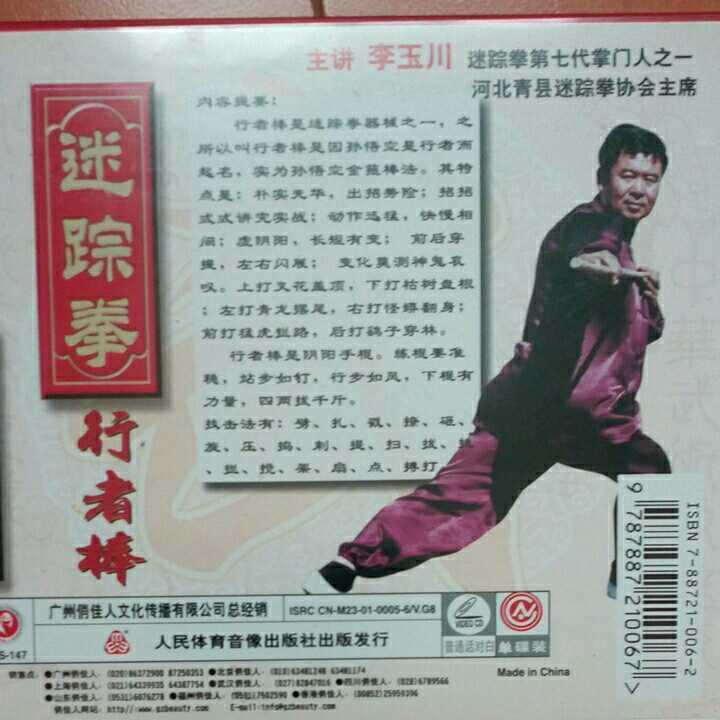 主讲 李玉川 迷踪拳第七代掌门人之一
河北青县迷踪拳协会主席
迷踪拳
行者棒
内容提要:
行者棒是迷踪拳器械之一,之
所以叫行者棒是因孙悟空是行者而
起名,实为孙悟空金箍棒法。其特
点是:朴实无华,出招势险;招招
式式讲究实战;动作迅猛,快慢相
间;虚阴阳,长短有变;前后穿
提,左右闪展;变化莫测神鬼哀
叹。上打叉花盖顶,下打枯树盘根;
左打青龙摆尾,右打怪蟒翻身;
前打猛虎翘路,后打鹞子穿林。
行者棒是阴阳手棍。练棍要准
稳,站步如钉,行步如风,下棍有
力量,四两拔千斤。
技击法有:劈、扎、戳、撩、砸、
旋、压、捣、刺、提、扫、拔、
、搅、架、扇、点、搏打
ISBN 7-88721-006-2
9 787887 210067
广州俏佳人文化传播有限公司总经销
ISRC CN-M23-01-0005-6/V.G8
人民体育音像出版社出版发行
VIDEO CD
普通话对白
单碟装
S-147
销售点:●广州俏佳人:(020)86372900 87250353 ●北京俏佳人:(010)63481248 63481174
●上海俏佳人:(021)64339935 64387754 ●武汉俏佳人:(027)82847016 ●四川俏佳人:(028)6789566
●山东俏佳人:(0531)6076278 ●福州俏佳人:(0591)7602590 ●香港俏佳人:(00852)25959396
俏佳人网站:http://www.gzbeauty.com E-mail:info@gzbeauty.com
Made in China